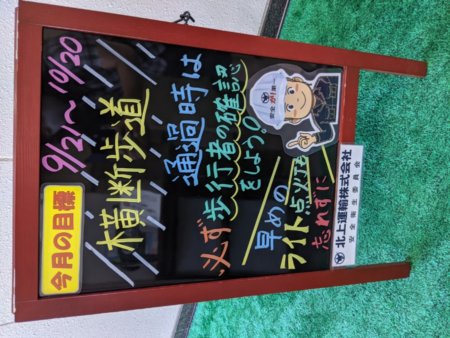 今月の目標
9/21～10/20
横断歩道
通過時は
必ず歩行者の確認
をしよう!!
早めの
ライト点灯
忘れずに
安全 第一
北上運輸株式会社
安全衛生委員会